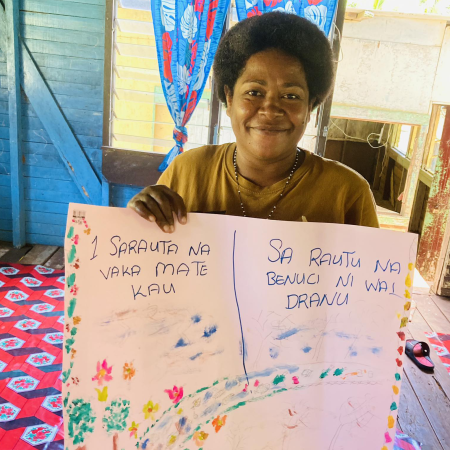 1 SARAUTA NA
VAKA MATE
KAU
SA RAUTU NA
BENUCI NI WAI
DRANU